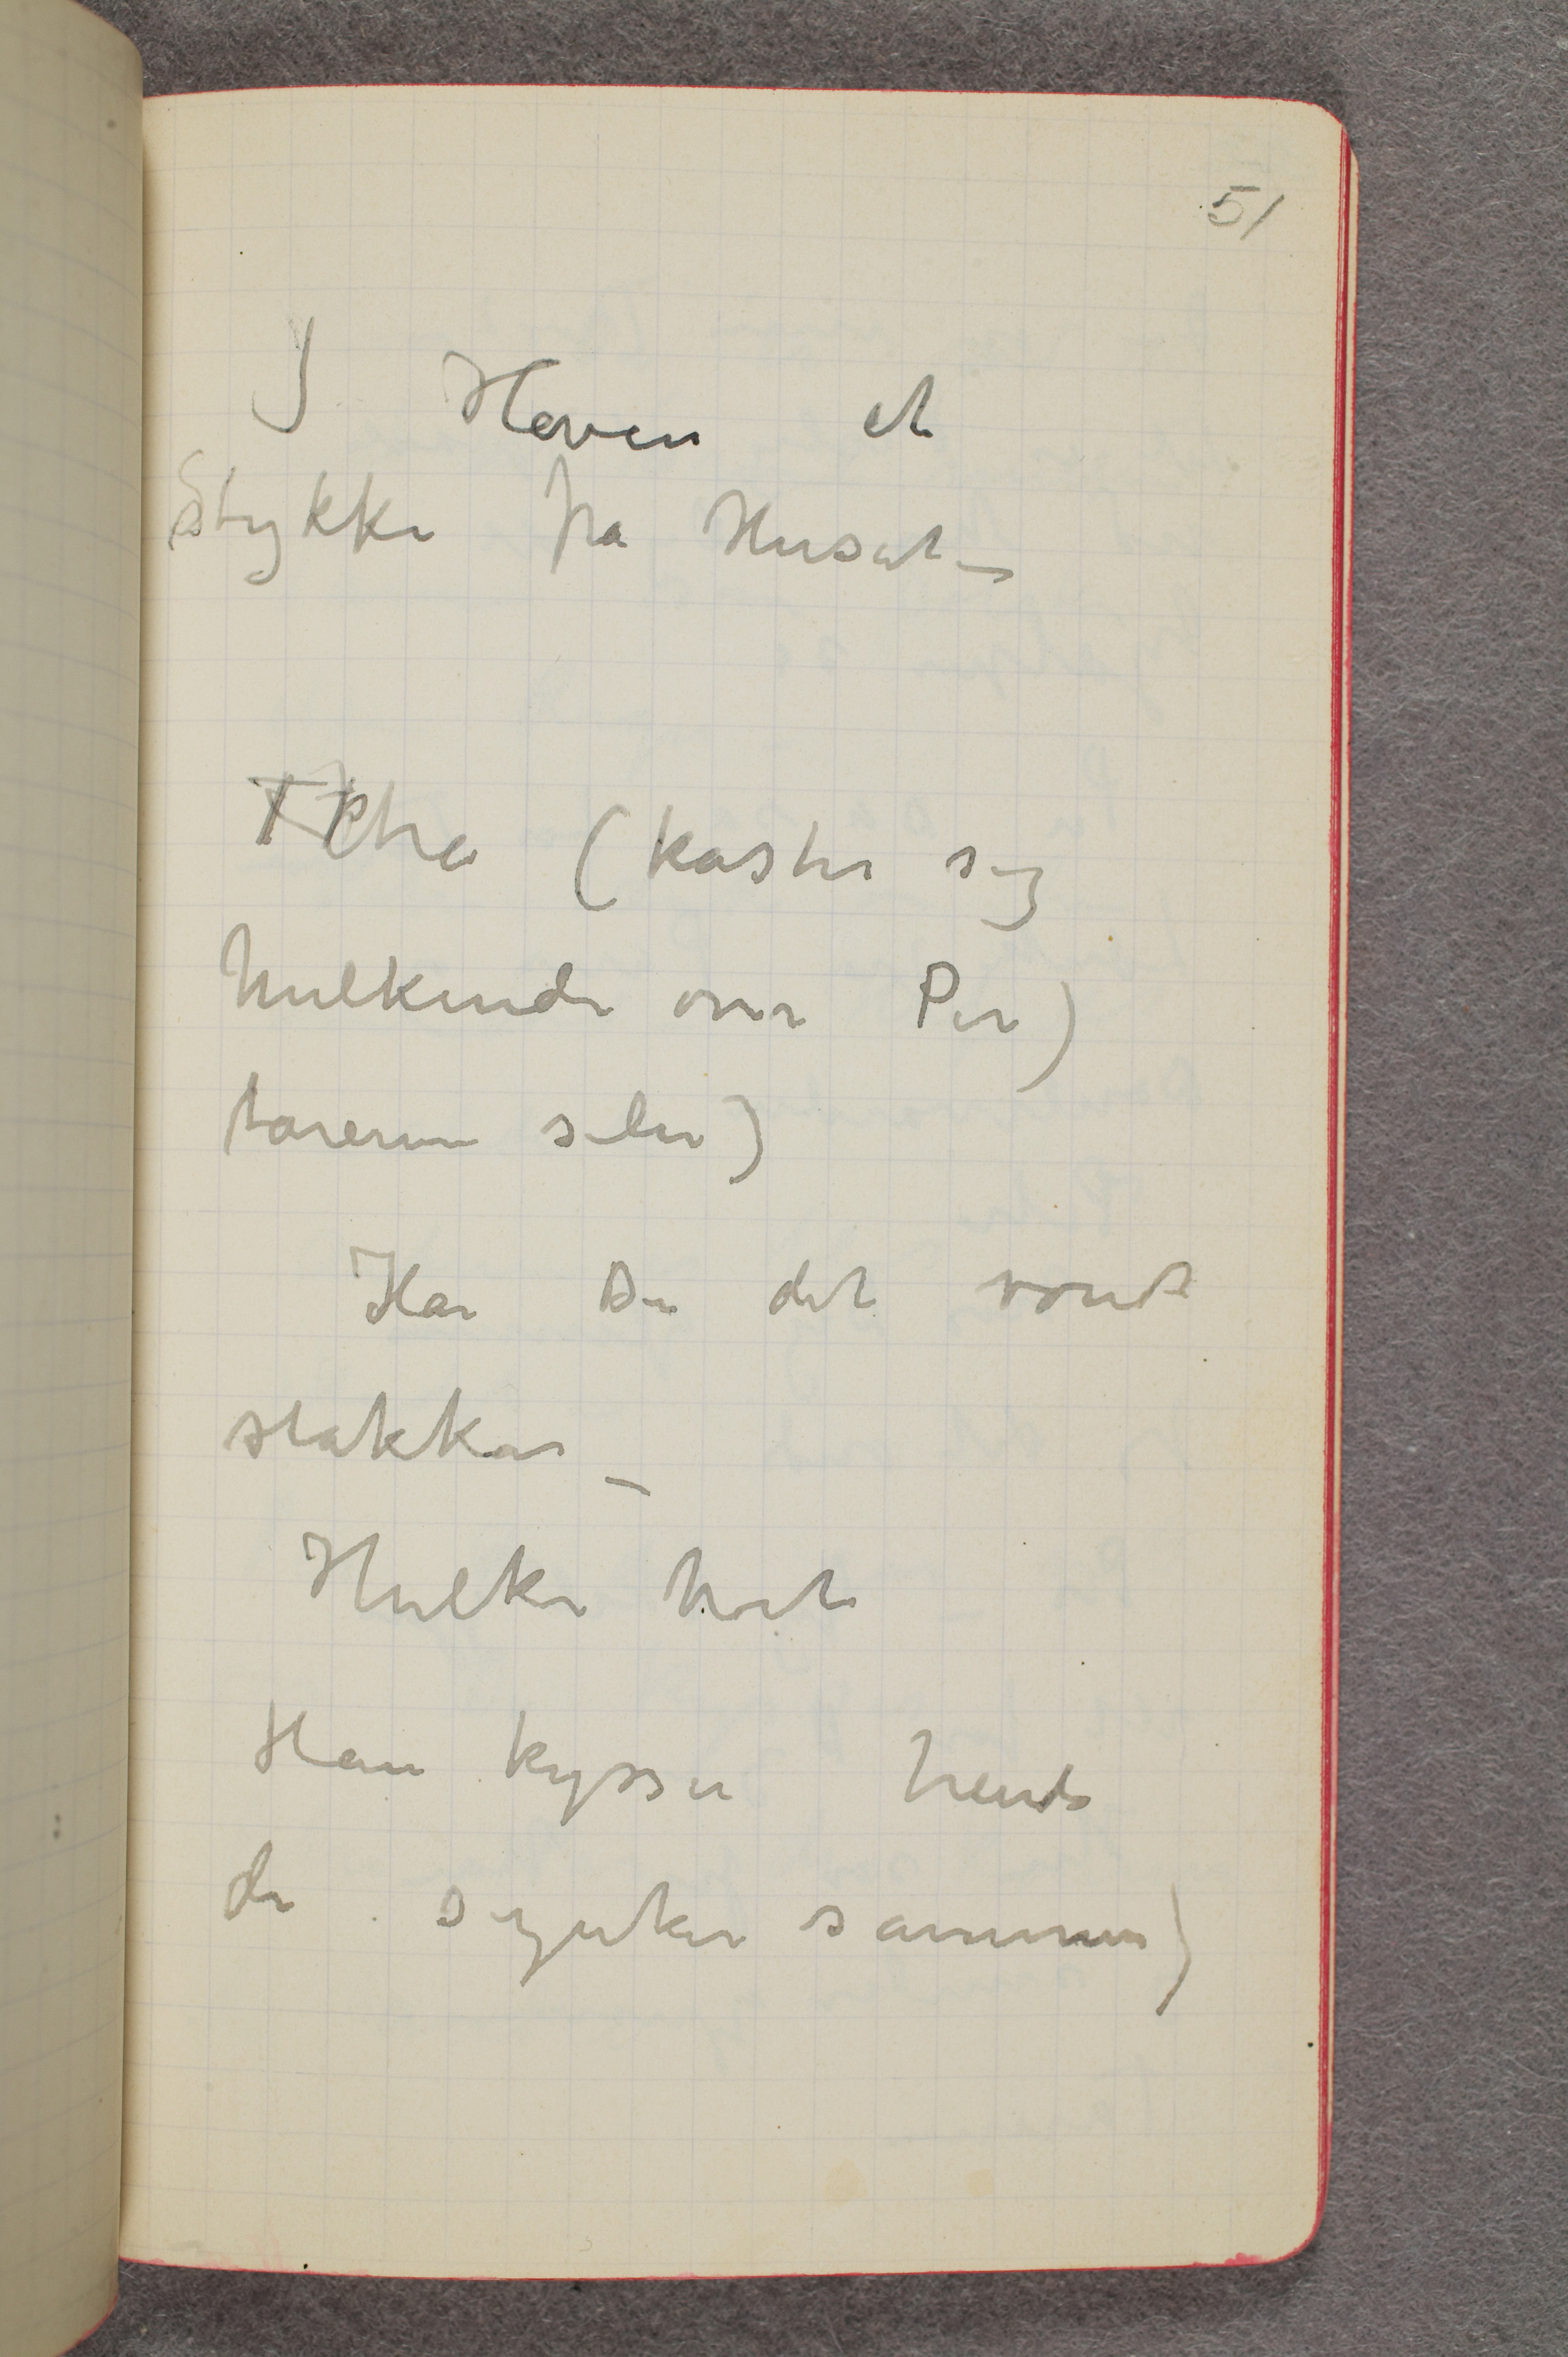 51
I Haven et
Stykke fra Huset_
(kaster sig
hulkende over Per)
tårerne)
Har Du det vondt
stakkar_
Hulker høit
Han kysser hende
de synker sammen)